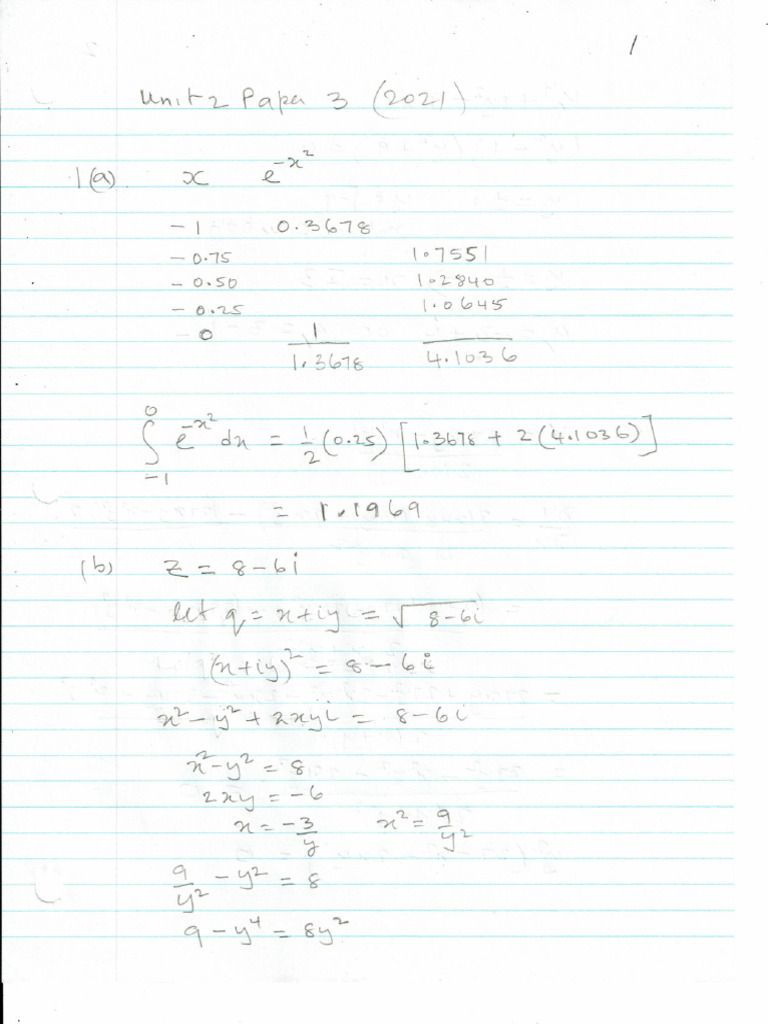 1
Unit 2 Paper 3 (2021)
1(a) x e^{-x^2}
-1 0.3678
-0.75 1.7551
-0.50 1.2840
-0.25 1.0645
-0 1
1.3678 4.1036
∫_{-1}^{0} e^{-x^2} dx = 1/2 (0.25) [1.3678 + 2(4.1036)]
= 1.1969
1(b) z = 8-6i
let q = x+iy = √(8-6i)
(x+iy)^2 = 8-6i
x^2 - y^2 + 2xyi = 8-6i
x^2 - y^2 = 8
2xy = -6
x = -3/y x^2 = 9/y^2
9/y^2 - y^2 = 8
9 - y^4 = 8y^2